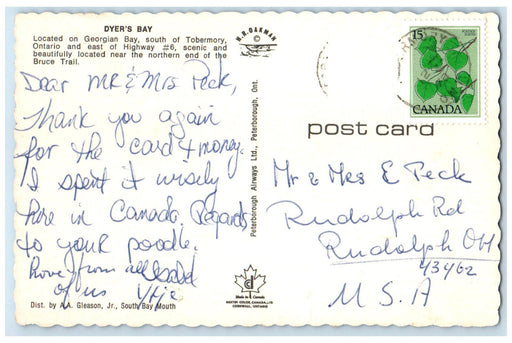 DYER'S BAY
Located on Georgian Bay, south of Tobermory,
Ontario and east of Highway #6, scenic and
beautifully located near the northern end of the
Bruce Trail.
Dear Mr & Mrs Peck,
Thank you again
for the card + money.
I spent it wisely
here in Canada. Regards
to your poodle.
Love from all
of us
Dist. by A.A. Gleason, Jr., South Bay Mouth
H.R. OAKMAN
©
Peterborough Airways Ltd., Peterborough, Ont.
Made in Canada
CORNWALL, ONTARIO
15
CANADA
post card
Mr & Mrs E Peck
Rudolph Rd
Rudolph OH
43462
U.S.A